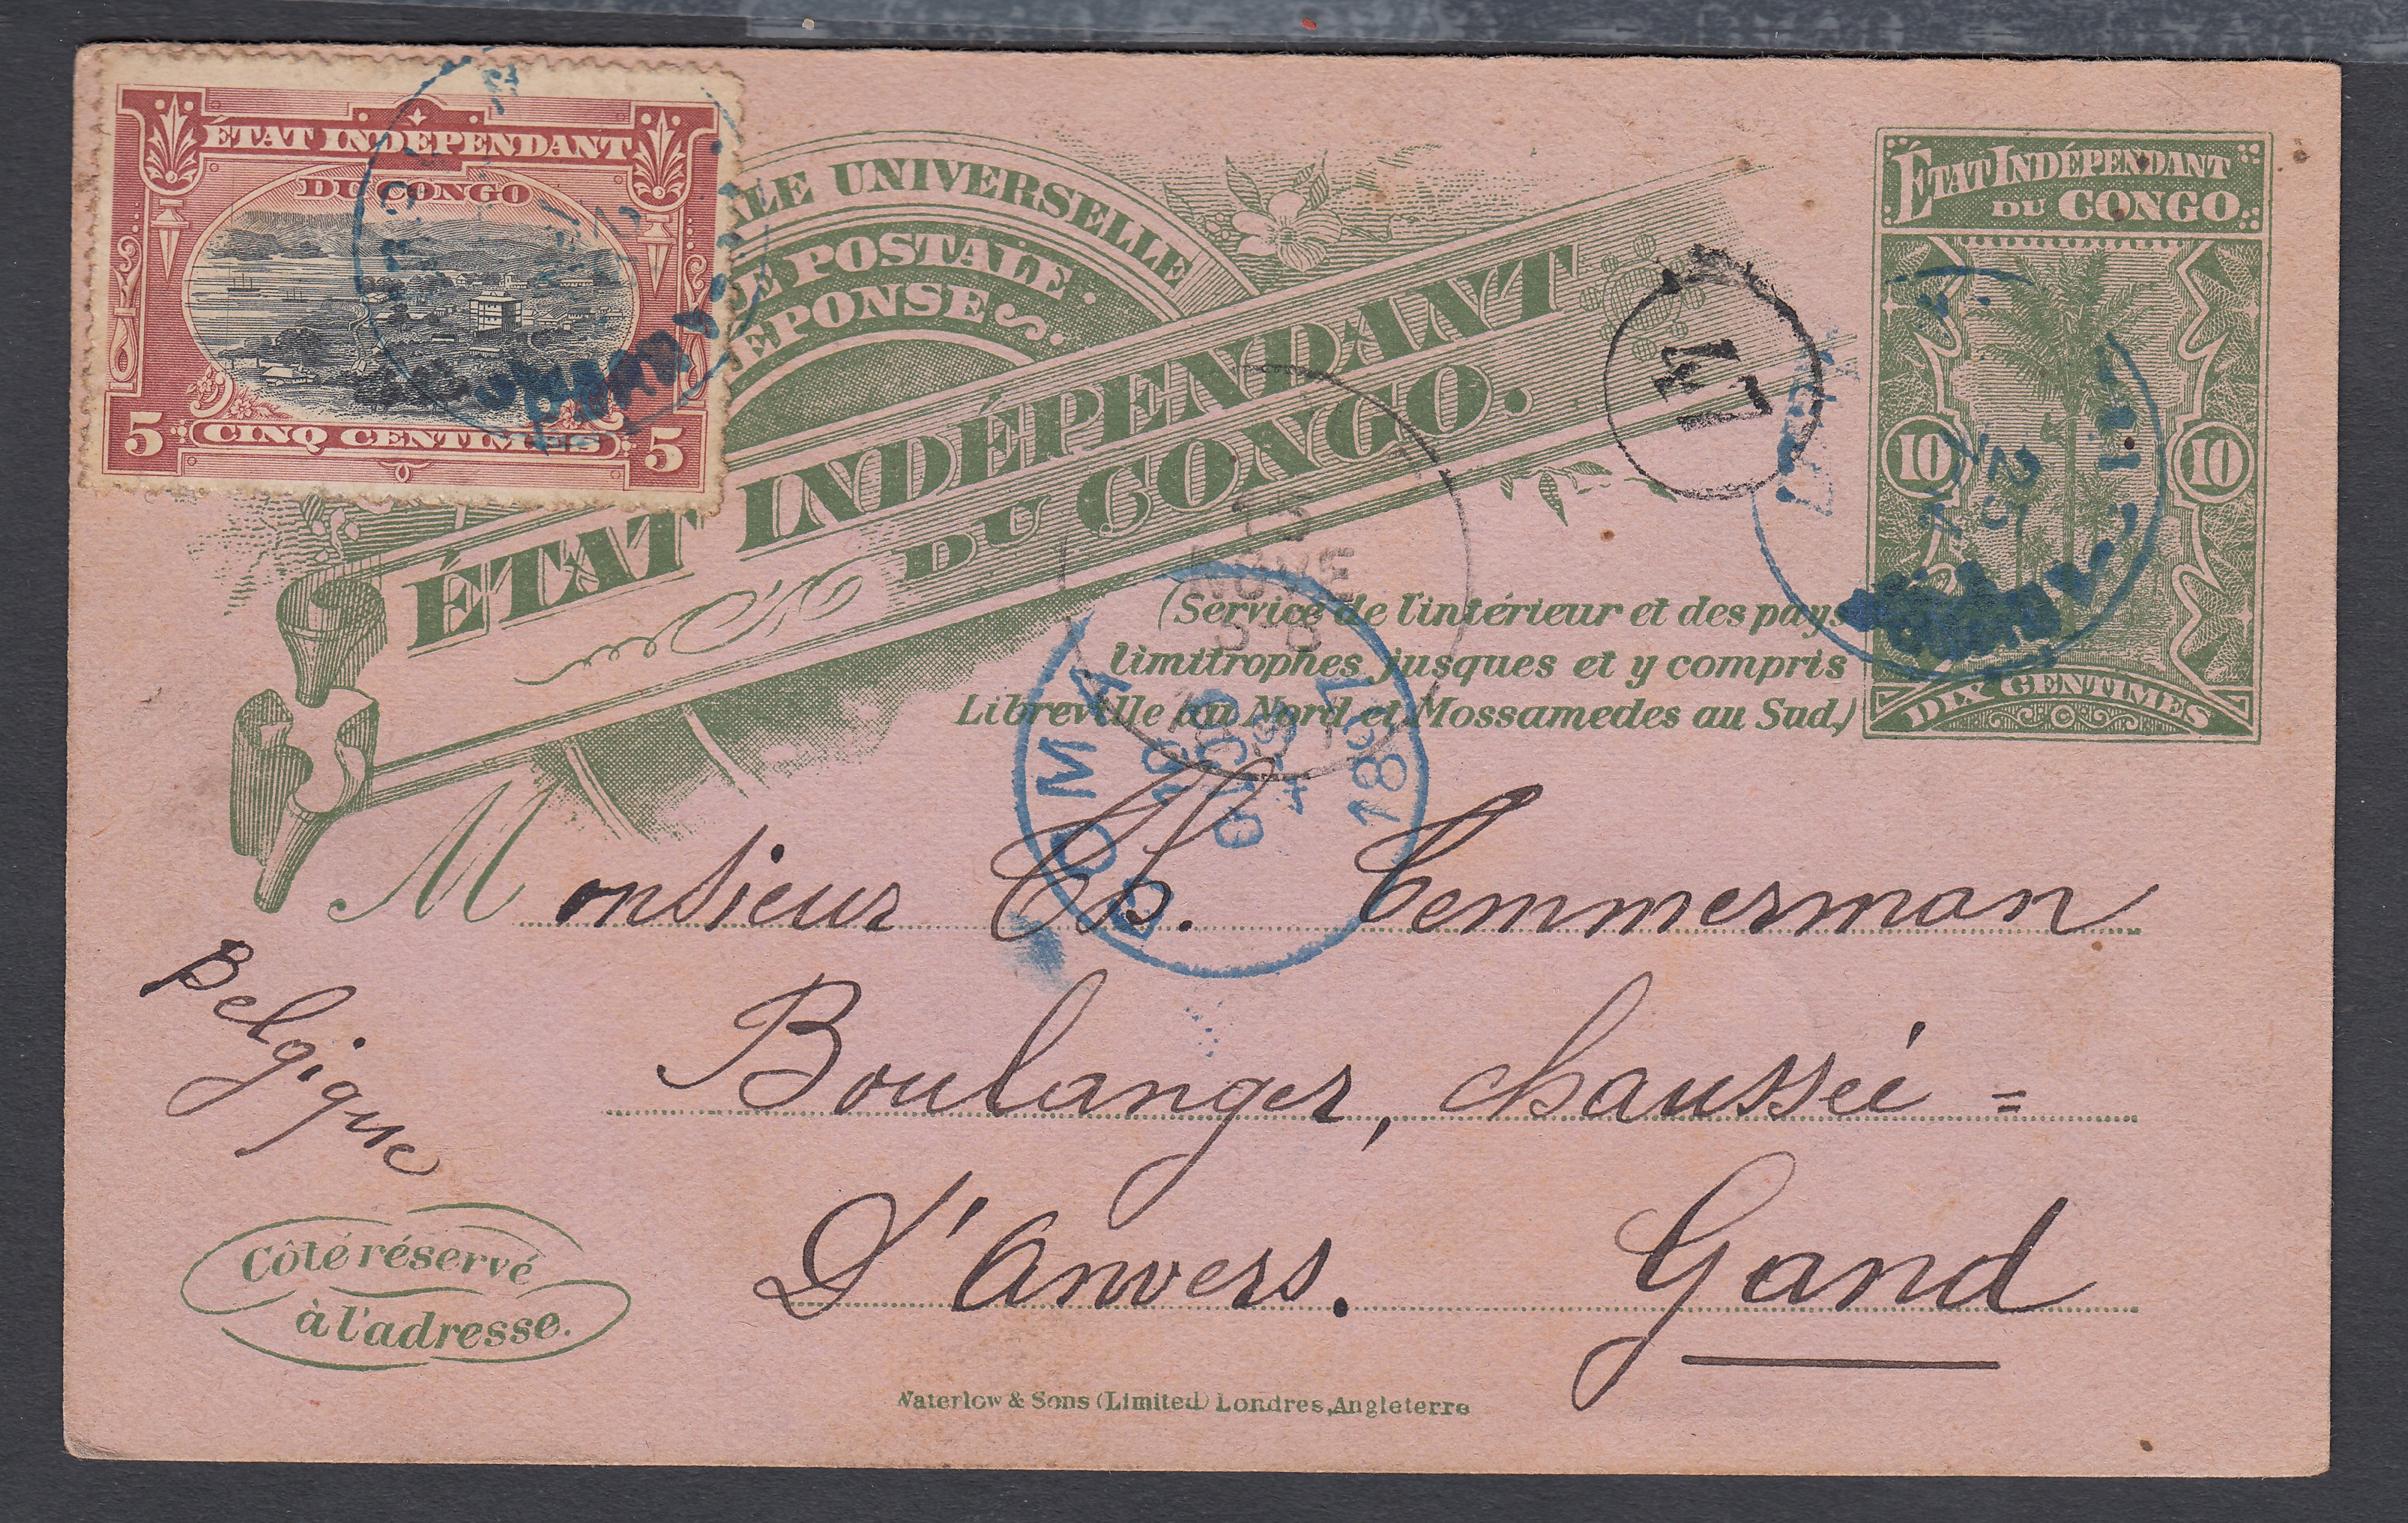 ÉTAT INDÉPENDANT
DU CONGO
5 CINQ CENTIMES 5
UNIVERSELLE
POSTALE
ÉTAT INDÉPENDANT
DU CONGO.
ÉTAT INDÉPENDANT
DU CONGO
10 10
DIX CENTIMES
LM
25
NOVE
(Service de l'intérieur et des pays
limitrophes, jusques et y compris
Libreville au Nord et Mossamedes au Sud.)
BOMA
18
OCTO
1897
Monsieur Ch. Temmerman
Boulanger, chaussée =
D'Anvers. Gand
Belgique
Côté réservé
à l'adresse.
Waterlow & Sons (Limited) Londres, Angleterre